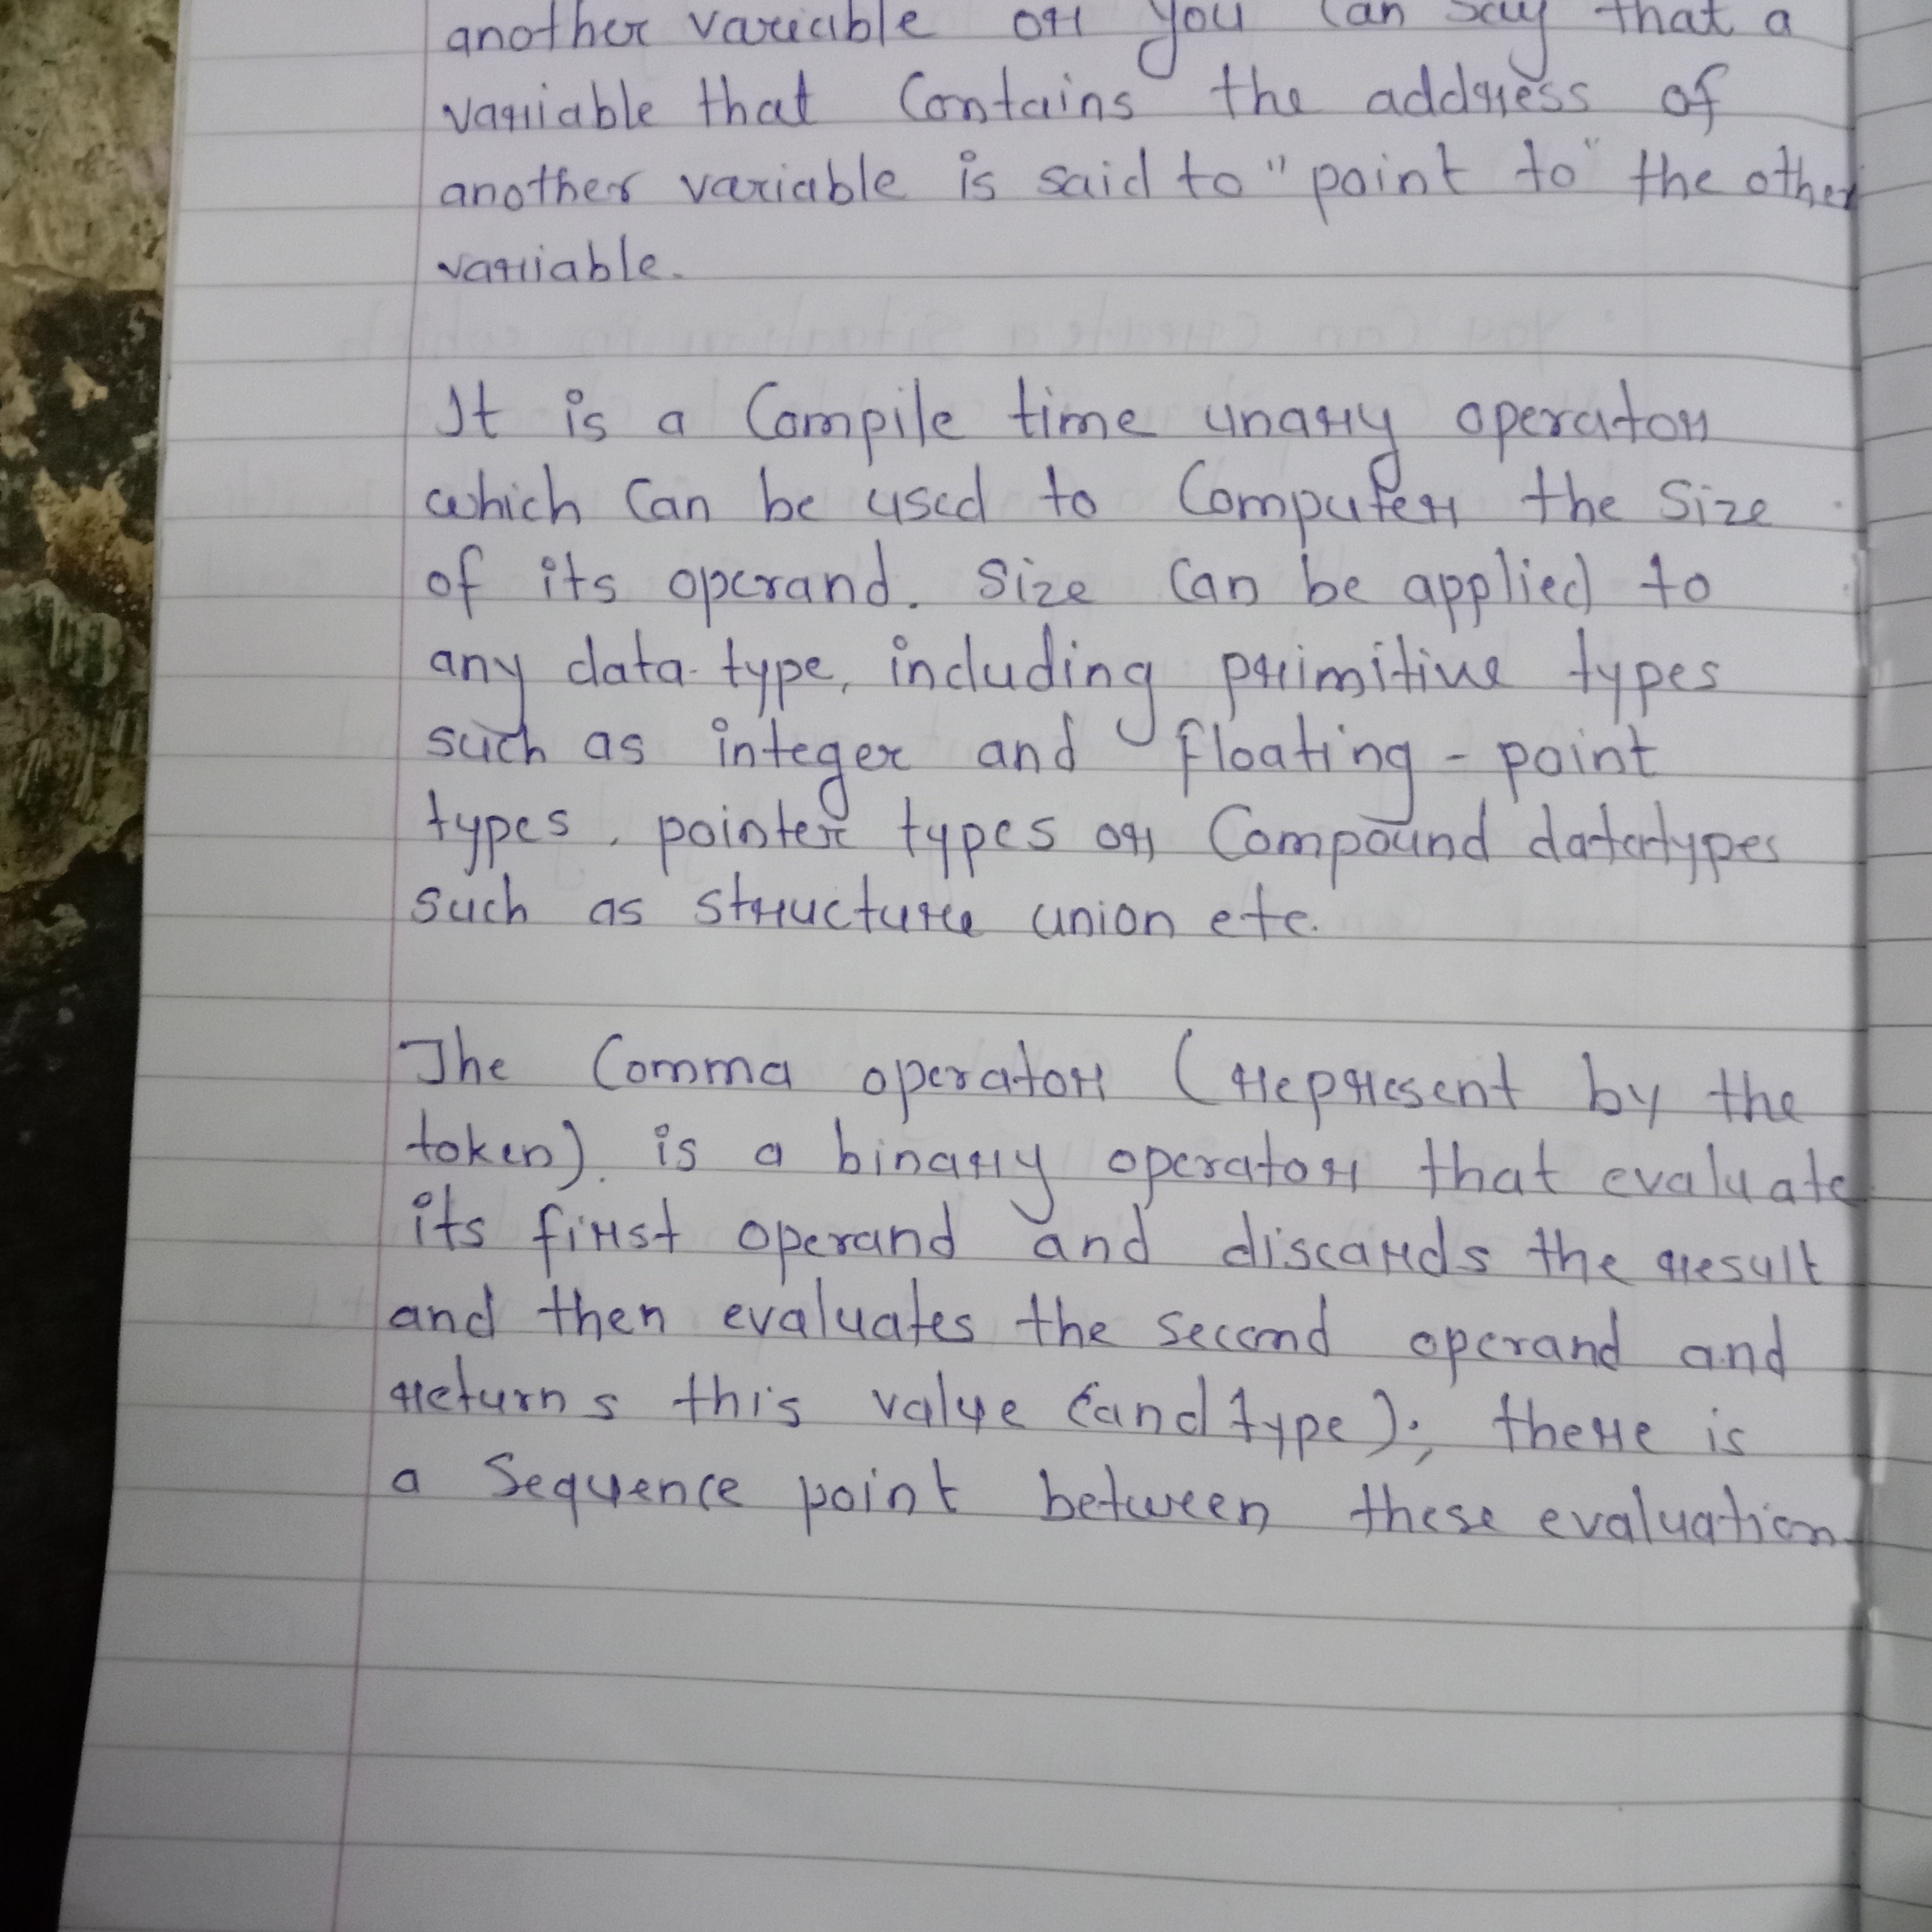 another variable or you can say that a
variable that Contains the address of
another variable is said to "point to" the other
variable.
It is a Compile time unary operator
which Can be used to Computer the Size
of its operand. Size Can be applied to
any data-type, including primitive types
such as integer and floating-point
types, pointer types or Compound datatypes
such as structure union etc.
The Comma operator (represent by the
token). is a binary operator that evaluate
its first operand and discards the result
and then evaluates the second operand and
returns this value (and type); there is
a Sequence point between these evaluation.